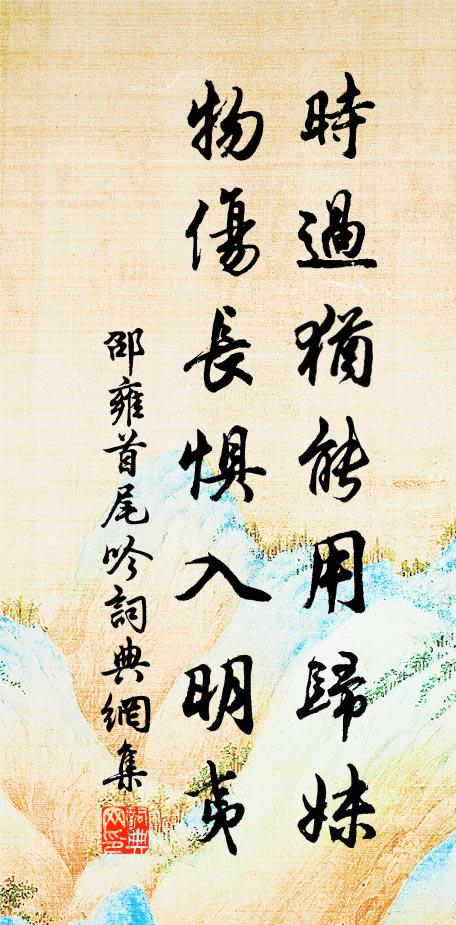 時過猶能用歸妹
物傷長懼入明夷
邵雍首尾吟詞典網集